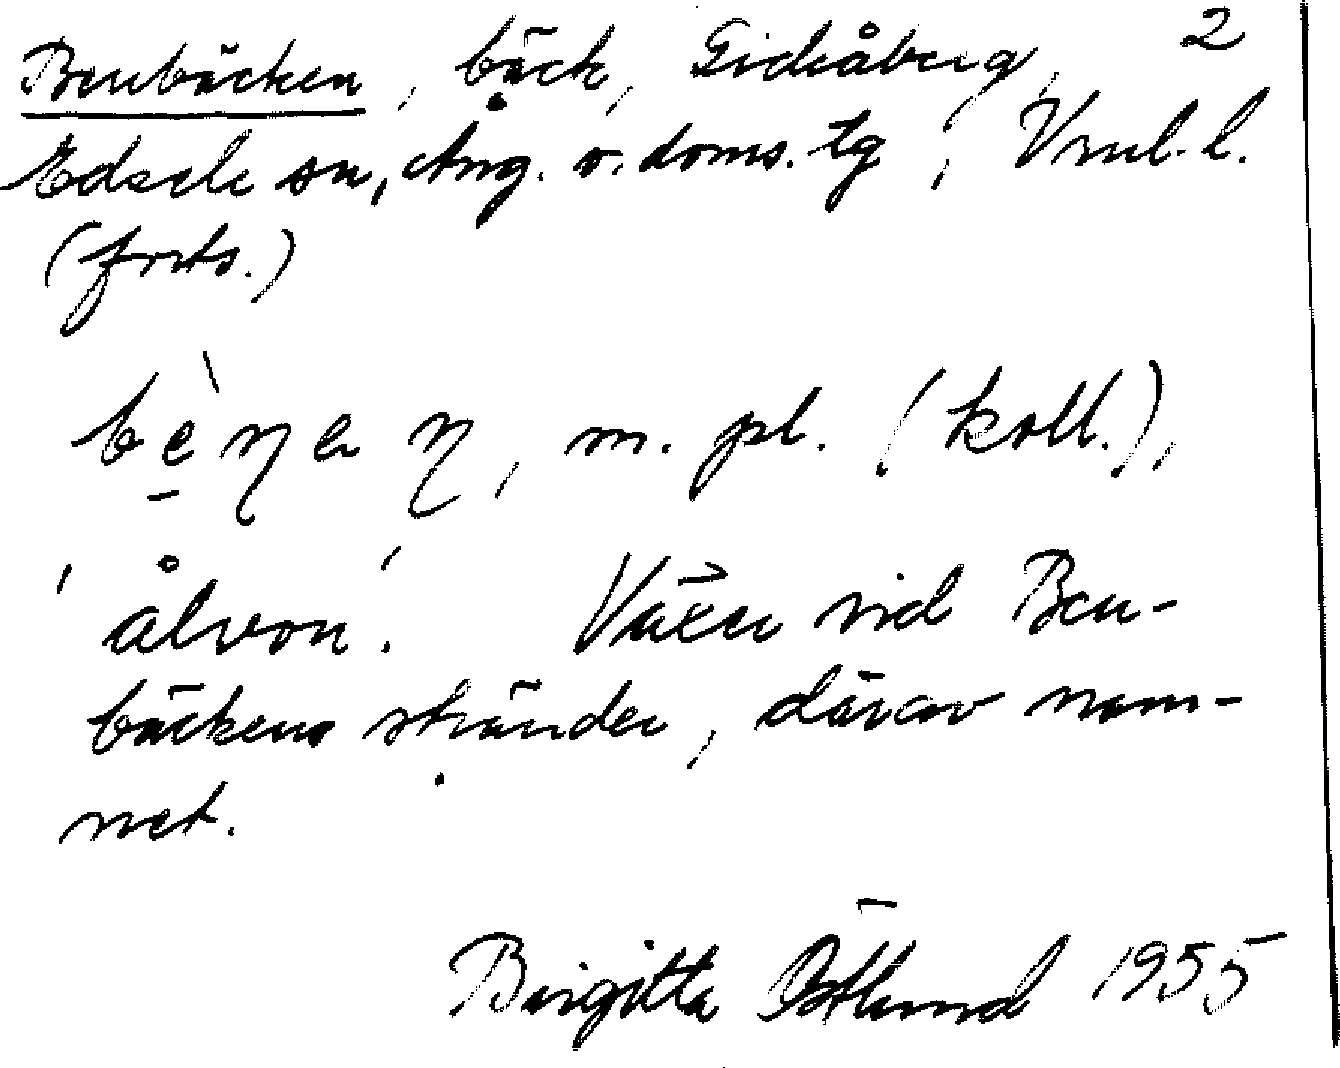 Benbäcken, bäck, Gideåberg, 2
Edsele sn, Ång. v. doms. tg, Vnnl. l.
(forts.)
m. pl. (koll.),
'ålvon'. Växer vid Ben-
bäckens stränder, därav nam-
net.
Birgitta Östlund 1955